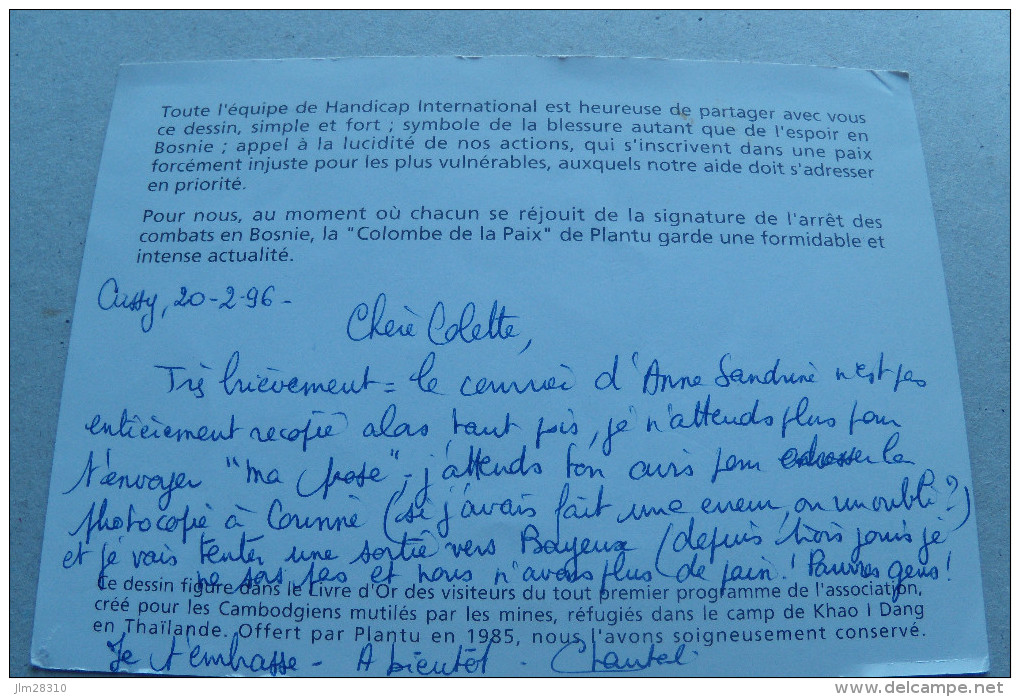 Toute l'équipe de Handicap International est heureuse de partager avec vous
ce dessin, simple et fort ; symbole de la blessure autant que de l'espoir en
Bosnie ; appel à la lucidité de nos actions, qui s'inscrivent dans une paix
forcément injuste pour les plus vulnérables, auxquels notre aide doit s'adresser
en priorité.
Pour nous, au moment où chacun se réjouit de la signature de l'arrêt des
combats en Bosnie, la "Colombe de la Paix" de Plantu garde une formidable et
intense actualité.
Cussy, 20-2-96-
Chère Colette,
Très brièvement = le courrier d'Anne Sandrine n'est pas
entièrement recopié alors tant pis, je n'attends plus pour
t'envoyer "ma prose" - j'attends ton avis pour adresser la
photocopie à Corinne (si j'avais fait une erreur, ou un oubli ?)
et je vais tenter une sortie vers Bayeux (depuis trois jours je
ne sors pas et nous n'avons plus de pain ! Pauvres gens !
Ce dessin figure dans le Livre d'Or des visiteurs du tout premier programme de l'association,
créé pour les Cambodgiens mutilés par les mines, réfugiés dans le camp de Khao I Dang
en Thaïlande. Offert par Plantu en 1985, nous l'avons soigneusement conservé.
Je t'embrasse - A bientôt - Chantal
jlm28310
www.delcampe.net